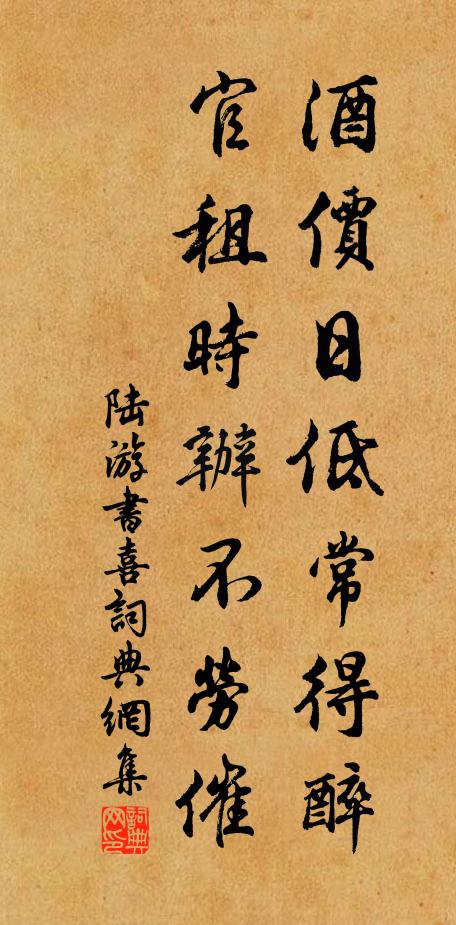 酒價日低常得醉
官租時辦不勞催
陆游書喜詞典網集
詞典网印